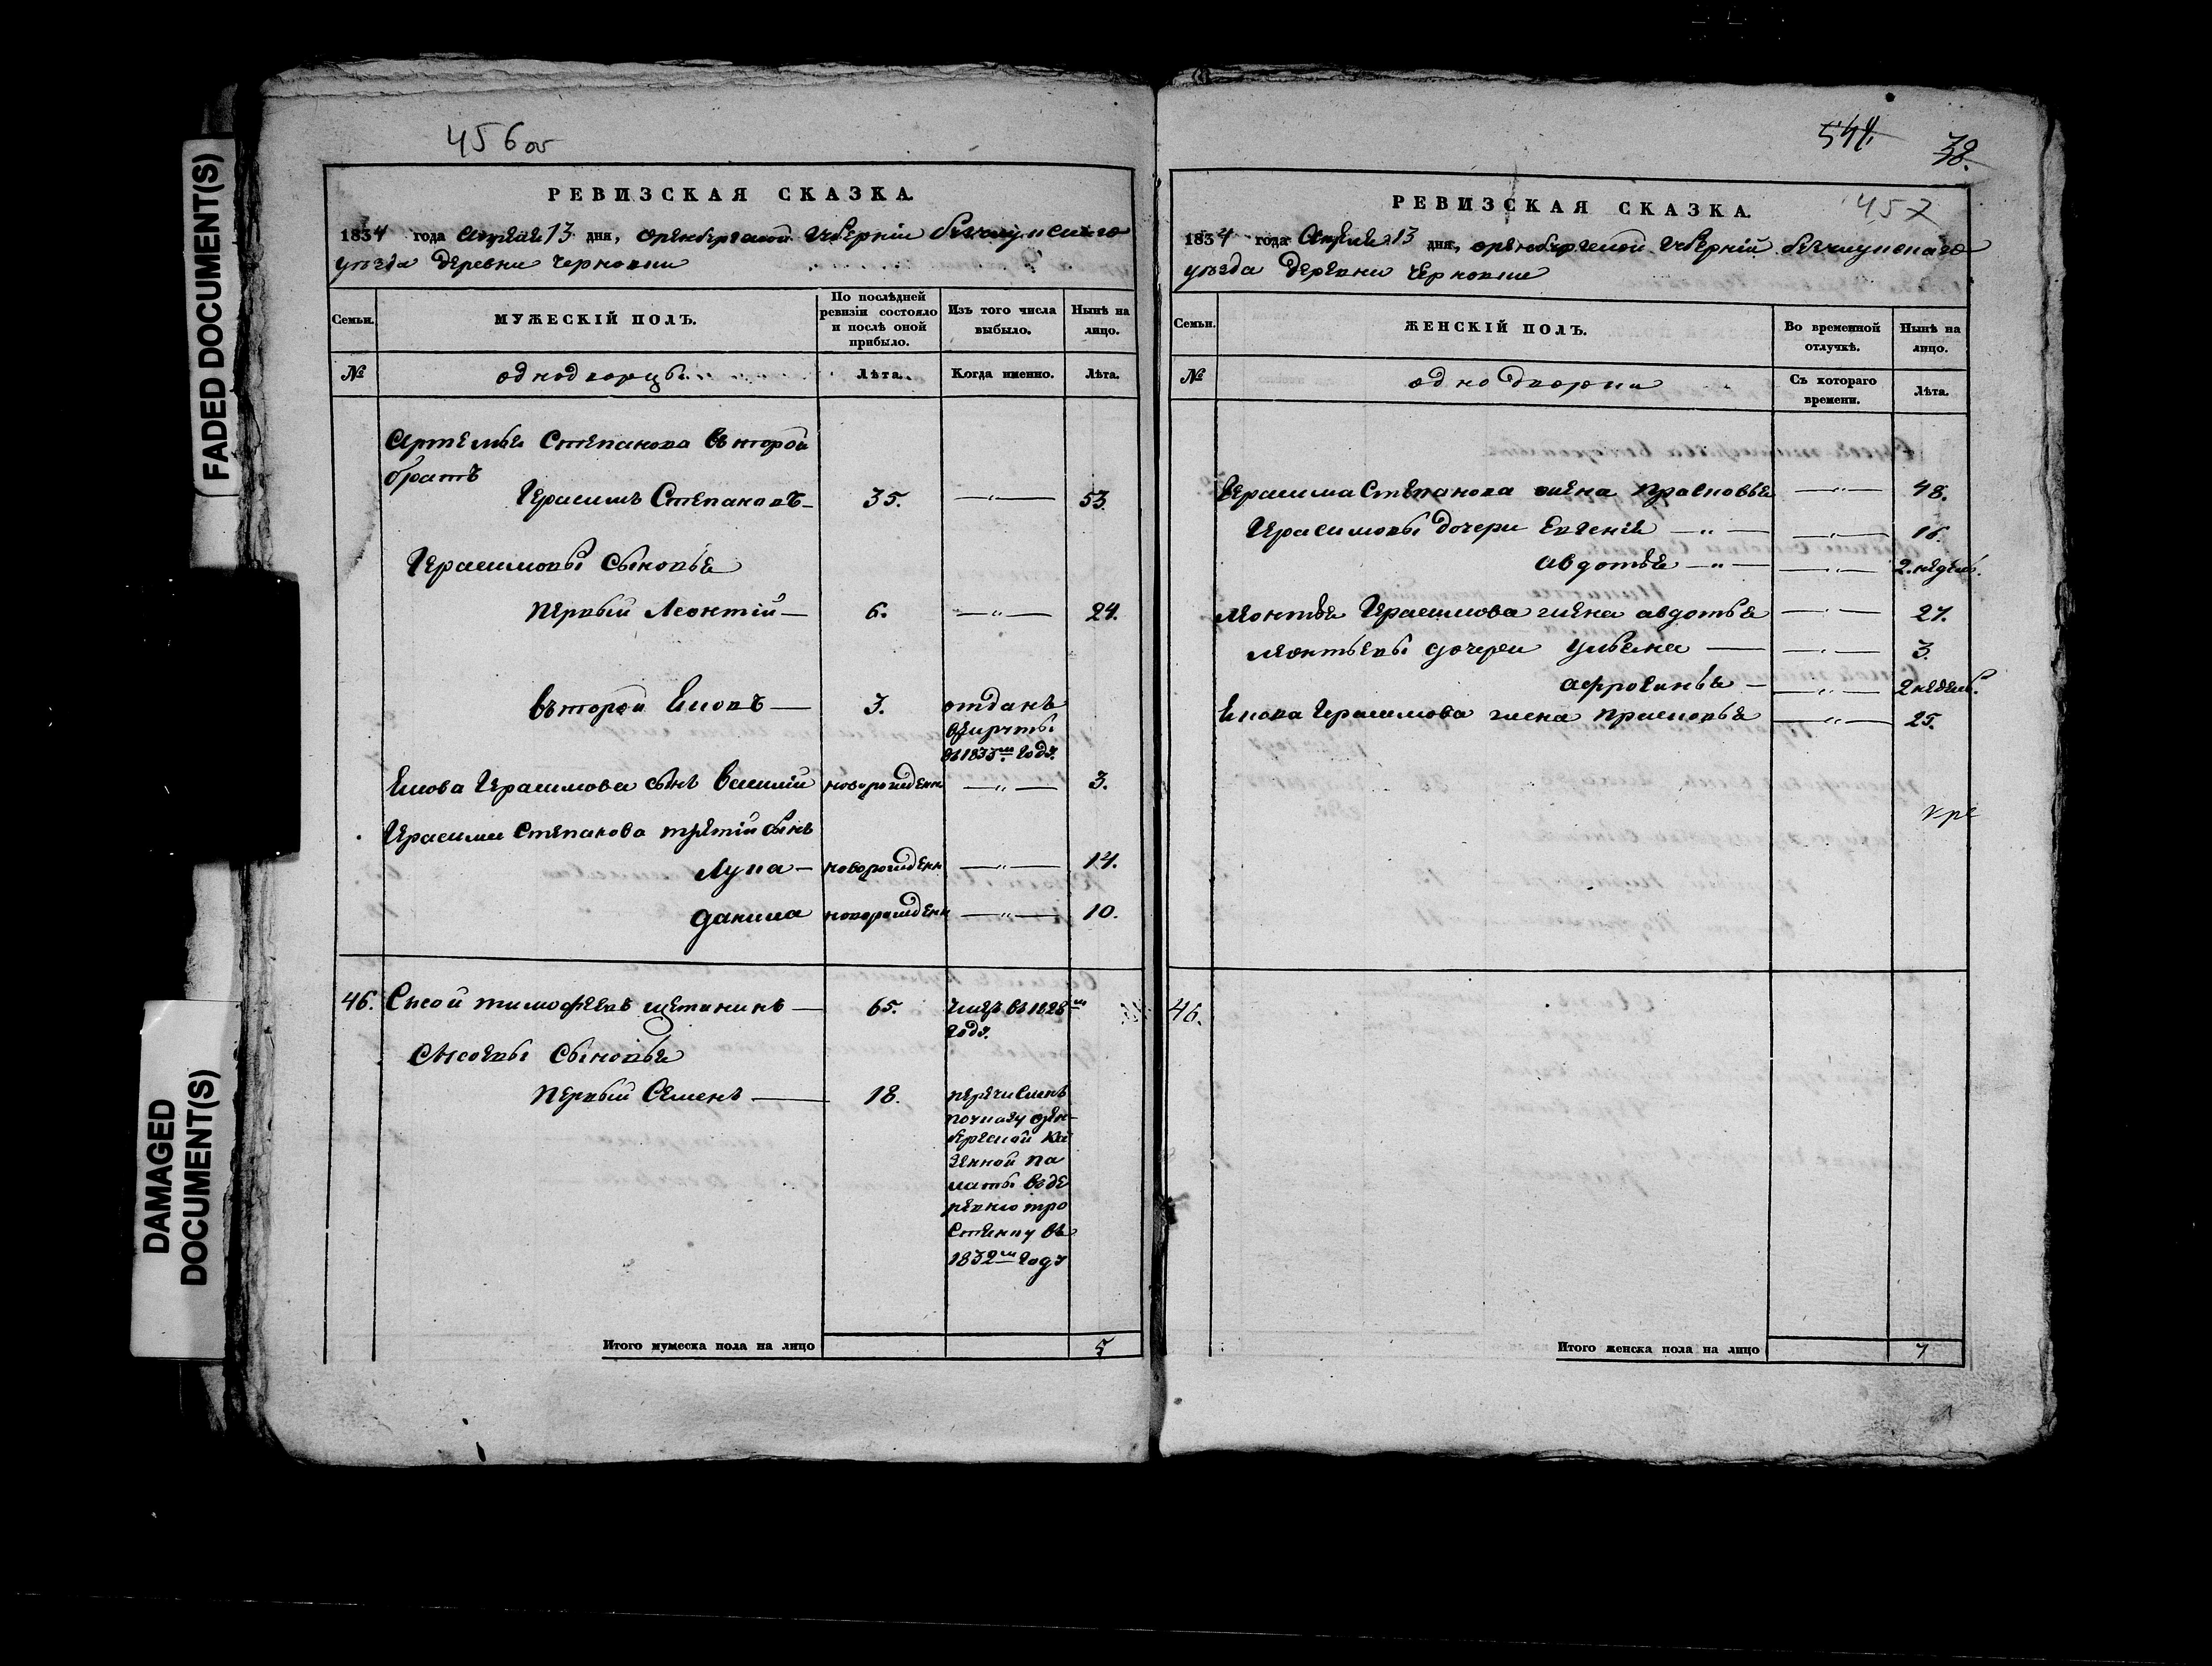 FADED DOCUMENT(S)
DAMAGED
DOCUMENT(S)
456об
РЕВИЗСКАЯ СКАЗКА.
1834 года Апреля 13 дня, оренбургской губернiи бугульминскаго
уѣзда деревни Черновки
Семьи.
МУЖЕСКIЙ ПОЛЪ.
По послѣдней
ревизiи состояло
и послѣ оной
прибыло.
Изъ того числа
выбыло.
Нынѣ на
лицо.
№
однодворцы
Лѣта.
Когда именно.
Лѣта.
Артемья Степанова въторой
братъ
Герасимъ Степановъ 35. —„— 53.
Герасимовы сыновья
первый Леонтiй 6. —„— 24.
въторой Еновъ 3. отданъ
въ годъ.
Енова Герасимова сынъ Василiй новорожденн —„— 3.
Герасима Степанова третiй сынъ
Лупа новорожденн —„— 14.
данила новорожденн —„— 10.
46. Сысой тимофеевъ щетининъ 65. умеръ въ 1828м
годъ.
Сысоевы сыновья
первый Семенъ 18. перечисленъ
по указу орен-
бургской ка
зенной па
латы въ де
ревню тро
стенку въ
1832м годъ
Итого мужеска пола на лицо 5
544.
38.
457
РЕВИЗСКАЯ СКАЗКА.
1834 года Апреля 13 дня, оренбургской губернiй бугульминскаго
уѣзда деревни Черновки
Семьи.
ЖЕНСКIЙ ПОЛЪ.
Во временной
отлучкѣ.
Нынѣ на
лицо.
№
однодворки
Съ котораго
времени.
Лѣта.
Герасима Степанова жена прасковья —„— 48.
Герасимовы дочери Евгенiя —„— —„— 16.
авдотья —„— —„— 2. недель.
леонтья Герасимова жена авдотья —„— 27.
леонтьевы дочери ульяна —„— 3.
афросинья —„— 2 недель.
Енова Герасимова жена прасковья —„— 25.
46.
Итого женска пола на лицо 7